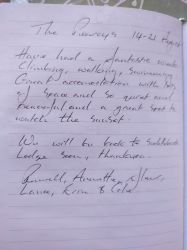 The Surveys 14-21 Aug
Have had a fantastic week
Climbing, walking, swimming
Great accommodation with lots
of space and so quiet and
peaceful and a great spot to
watch the sunset.
We will be back to
Lodge soon, thankyou.
Annette,
Lance, Kim & Cole